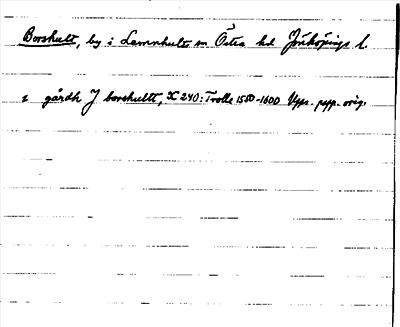 Borshult, by i Lannhults sn Östra hd Jönköpings l.
1 gårdh J borshultt, X 240: Trolle 1550-1600 Ups. papp. orig.